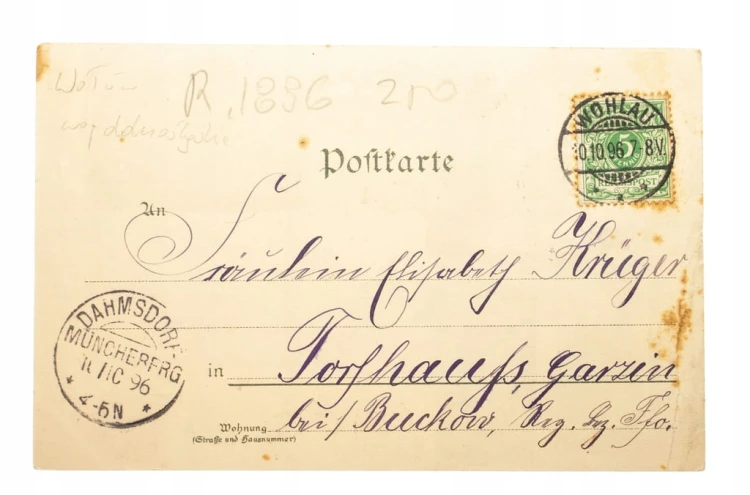 Wołów R. 1896 200
WOHLAU
5
0.10.96 7-8V.
REICHSPOST
Postkarte
An
Fräulein Elisabeth Krüger
in Forsthaus, Garzin
bei/Buckow, Reg. Bez. Ffo.
Wohnung
(Straße und Hausnummer)
DAHMSDORF
MÜNCHEBERG
10 96
4-5N